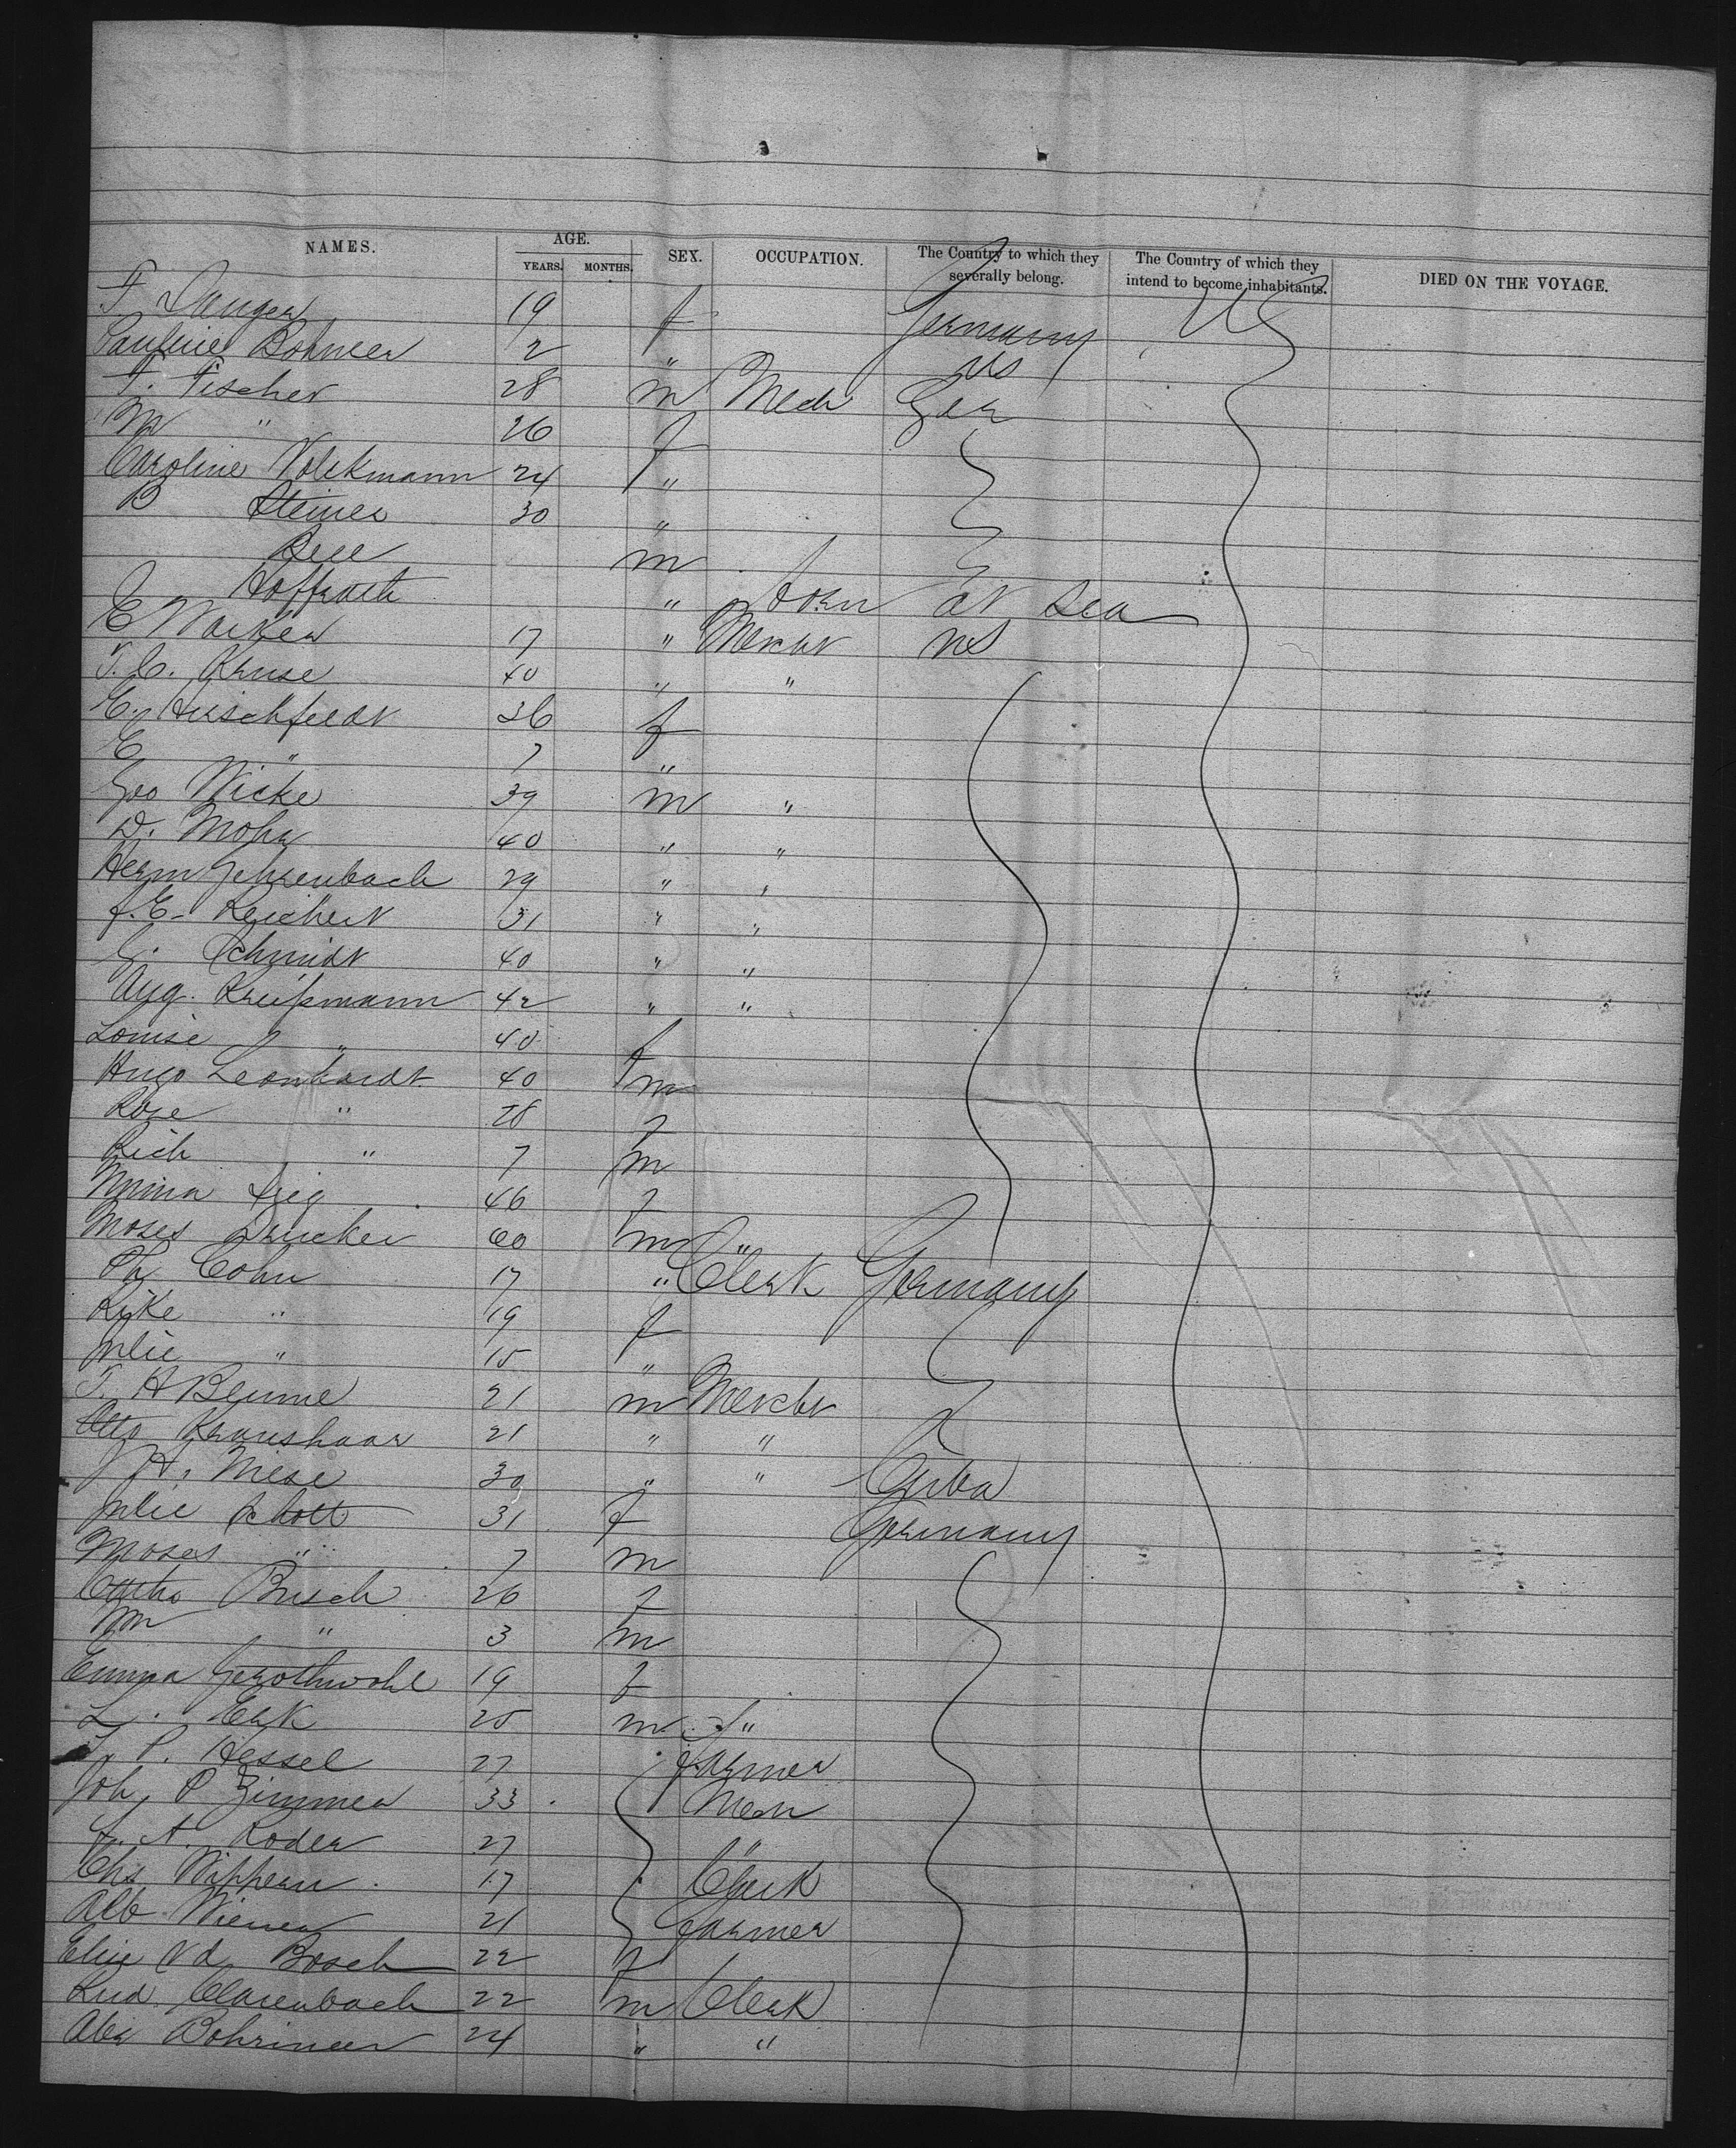 NAMES. AGE. SEX. OCCUPATION. The Country to which they severally belong. The Country of which they intend to become inhabitants. DIED ON THE VOYAGE.
YEARS. MONTHS.
F. 19 f Germany US
Pauline 2 " US
F. Fischer 28 m Mech Ger
M " 26 f
Caroline Volckmann 24 "
B Steiner 30 "
m
Hoffrath " born at sea
E 17 " Mercht US
F. C. Kruse 40 " "
E. Hirschfeldt 36 f
E " 7 "
Geo Wicke 39 m "
D. Mohr 40 " "
Herm Gehrenbach 29 " "
F. E. Reichert 31 " "
G. Schmidt 40 " "
Aug. Kreißmann 42 " "
Louise " 40 f
Hugo Leonhardt 40 m
Rose " 28 f
Rich " 7 m
46 f
Moses Drucker 60 m "
Ph Cohn 17 " Clerk Germany
Rike " 19 f
Julie " 15 "
F. H Blume 21 m Mercht
Otto Kraushaar 21 " "
J H. Niese 30 " " Cuba
Julie Schott 31 f Germany
Moses " 7 m
Busch 26 f
Wm " 3 m
Emma Gerothwohl 19 f
L. Erk 25 m "
P. Hessel 27 Farmer
Joh P Zimmer 33
A. Roder 27 "
Chs Wippern 17 Clerk
Alb Wiener 21 Farmer
Elise v d Bosch 22 f
Rud. Clarenbach 22 m Clerk
Alex Bohringer 24 " "